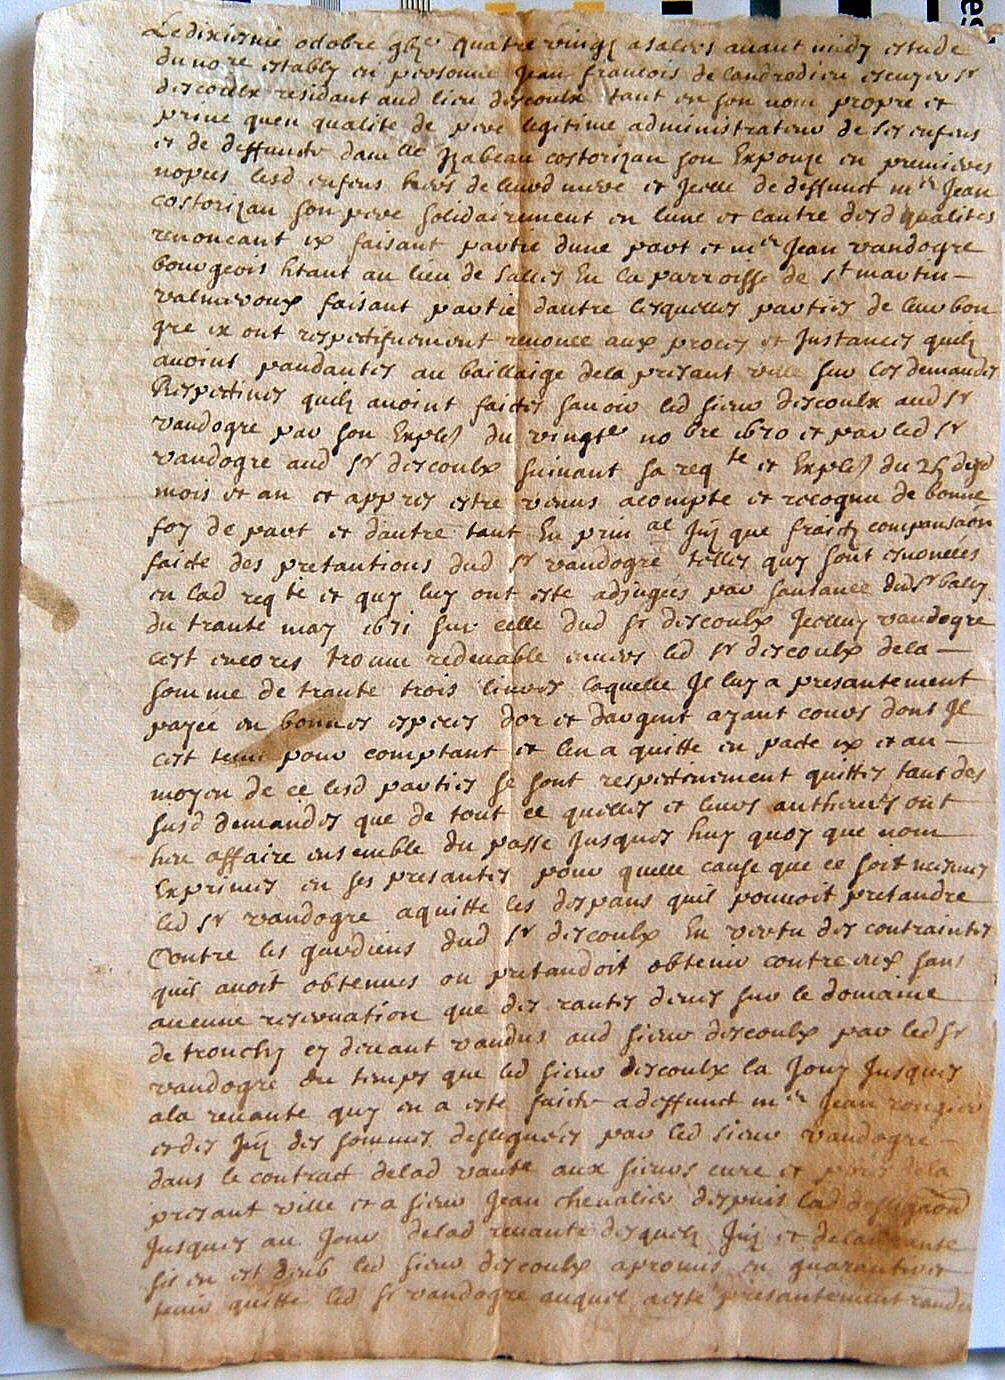 Le dixiesme octobre gbc quatre vingz a salers avant midy estude
du no re estably en personne Jean francois de landrodieu escuyer sr
descoulx residant aud lieu descoulx tant en son nom propre et
prive quen qualite de pere legitime administrateur de ses enfens
et de deffuncte dam lle Izabeau costorizan son Expouze en premieres
nopces lesd enfens hers de leurd mere et Icelle de deffunct m re Jean
costorizan son pere solidairement en lune et lautre desd qualites
renoncant ix faisant partie dune part et m re Jean vandogre
bourgeois htant au lieu de salles En la parroisse de st martin
valmeroux faisant partie dautre lesquelles parties de leur bon
gre ix ont respectifvement renonce aux proces et Instances quilz
avoint pandantes au bailliaige dela presant ville sur les demandes
Respectives quilz avoint faictes scavoir led sieur descoulx aud sr
vandogre par son Exploi du vingte no bre 1670 et par led sr
vandogre aud sr descoulx suivant sa req te et Exploi du 25 desd
mois et an et appres estre venus acompte et recognu de bonne
foy de part et dautre tant En prin al Jnj que fraictz compansaon
faicte des pretantions dud sr vandogre telles quy sont esnoncees
en lad req te et quy luy ont este adjugees par santance dud sr baly
du trante may 1671 sur celle dud sr descoulx Jcelluy vandogre
cest encores trouve redevable envers led sr descoulx dela
somme de trante trois livres laquelle Jl luy a presantement
payee en bonnes especes dor et dargent ayant cours dont Jl
cest tenu pour comptant et len a quitte en pacte ix et au
moyen de ce lesd parties se sont respectivement quittes tant des
susd demandes que de tout ce quelles et leurs autheurs ont
heu affaire ensemble du passe Jusques huy quoy que nom
Exprimes en ses presantes pour quelle cause que ce soit mesmes
led sr vandogre a quitte les despans quil pouvoit pretandre
Contre les gardiens dud sr descoulx En vertu des contraintes
quil avoit obtenues ou pretandoit obtenir contre eux sans
aucune reservation que des rantes deues sur le domaine
de tronchy ey devant vandus aud sieur descoulx par led sr
vandogre du temps que led sieur descoulx la Jouy Jusques
ala revante quy en a este faicte a deffunct m re Jean rongier
et des Jnj des sommes desleguees par led sieur vandogre
dans le contract delad vante aux sieurs cure et dela
presant ville et a sieur Jean chevalier despuis lad deslegaon
Jusques au Jour delad revante desquelz Jnj et delad rante
sil en est deub led sieur descoulx a promis en guarantir et
tenir quitte led sr vandogre auquel a este presantement randu